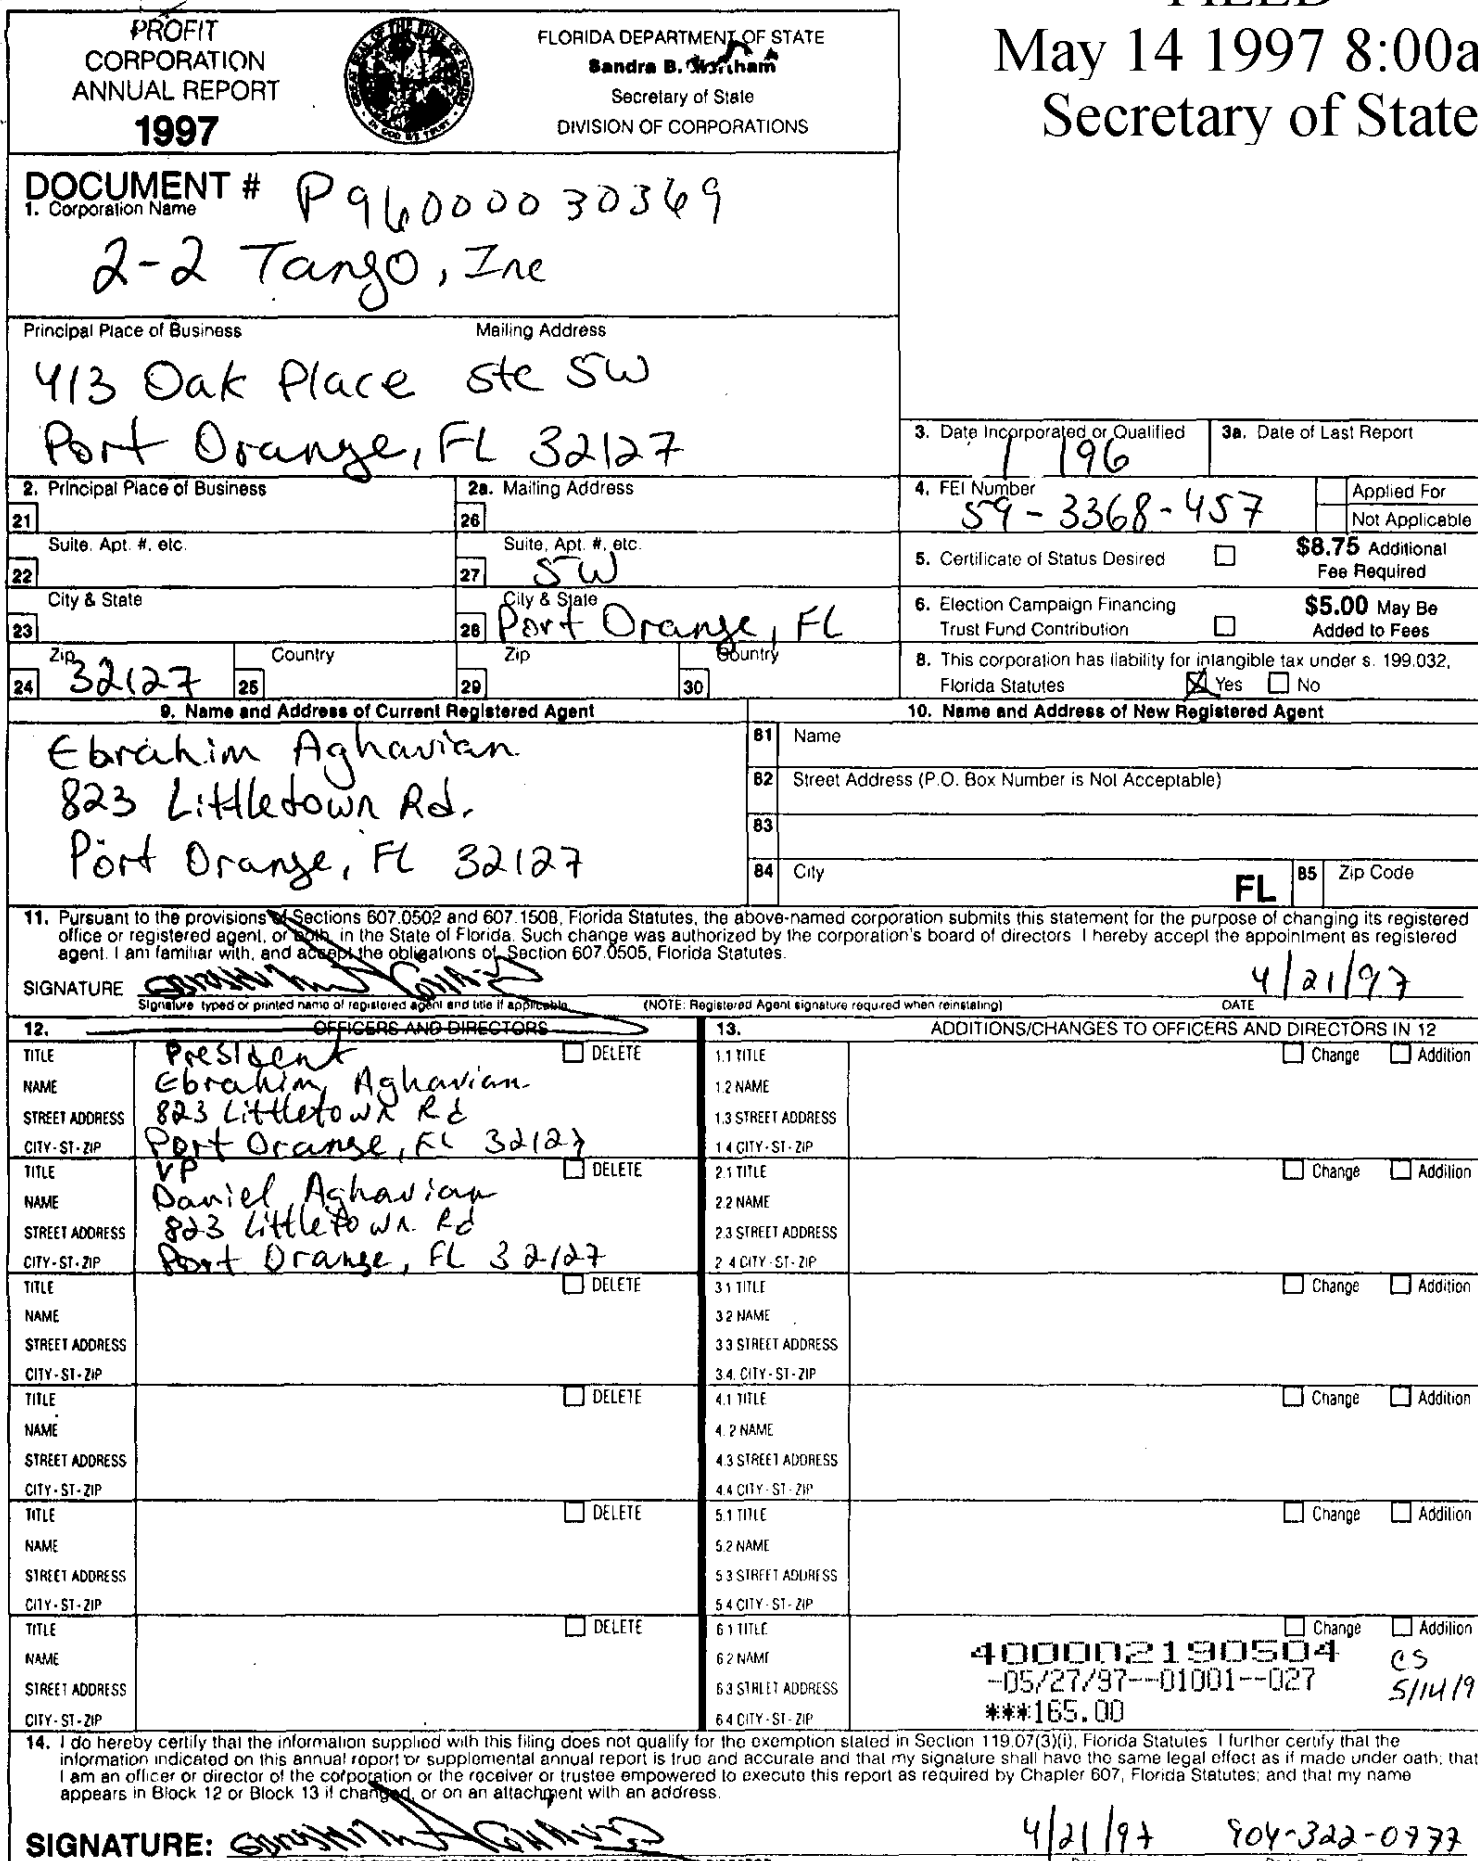 PROFIT
CORPORATION
ANNUAL REPORT
1997
FLORIDA DEPARTMENT OF STATE
Sandra B. Mortham
Secretary of State
DIVISION OF CORPORATIONS
FILED
May 14 1997 8:00a
Secretary of State
DOCUMENT # P96000030369
1. Corporation Name
2-2 Tango, Inc
Principal Place of Business Mailing Address
413 Oak Place Ste 5W
Port Orange, FL 32127
3. Date Incorporated or Qualified 3a. Date of Last Report
1/96
2. Principal Place of Business 2a. Mailing Address
4. FEI Number Applied For
59-3368-457 Not Applicable
21 26
Suite. Apt. #, etc. Suite, Apt. #, etc.
22 27 5W
5. Certificate of Status Desired $8.75 Additional
Fee Required
City & State City & State
23 28 Port Orange, FL
6. Election Campaign Financing $5.00 May Be
Trust Fund Contribution Added to Fees
Zip Country Zip Country
24 32127 25 29 30
8. This corporation has liability for intangible tax under s. 199.032,
Florida Statutes Yes No
9. Name and Address of Current Registered Agent
Ebrahim Aghavian
823 Littletown Rd.
Port Orange, FL 32127
10. Name and Address of New Registered Agent
81 Name
82 Street Address (P.O. Box Number is Not Acceptable)
83
84 City FL 85 Zip Code
11. Pursuant to the provisions of Sections 607.0502 and 607.1508, Florida Statutes, the above-named corporation submits this statement for the purpose of changing its registered
office or registered agent, or both, in the State of Florida. Such change was authorized by the corporation's board of directors I hereby accept the appointment as registered
agent. I am familiar with, and accept the obligations of, Section 607.0505, Florida Statutes.
SIGNATURE 4/21/97
Signature typed or printed name of registered agent and title if applicable (NOTE: Registered Agent signature required when reinstating) DATE
12. OFFICERS AND DIRECTORS
TITLE President DELETE
NAME Ebrahim Aghavian
STREET ADDRESS 823 Littletown Rd
CITY-ST-ZIP Port Orange, FL 32127
TITLE VP DELETE
NAME Daniel Aghavian
STREET ADDRESS 823 Littletown Rd
CITY-ST-ZIP Port Orange, FL 32127
TITLE DELETE
NAME
STREET ADDRESS
CITY-ST-ZIP
TITLE DELETE
NAME
STREET ADDRESS
CITY-ST-ZIP
TITLE DELETE
NAME
STREET ADDRESS
CITY-ST-ZIP
TITLE DELETE
NAME
STREET ADDRESS
CITY-ST-ZIP
13. ADDITIONS/CHANGES TO OFFICERS AND DIRECTORS IN 12
1.1 TITLE Change Addition
1.2 NAME
1.3 STREET ADDRESS
1.4 CITY-ST-ZIP
2.1 TITLE Change Addition
2.2 NAME
2.3 STREET ADDRESS
2.4 CITY-ST-ZIP
3.1 TITLE Change Addition
3.2 NAME
3.3 STREET ADDRESS
3.4. CITY-ST-ZIP
4.1 TITLE Change Addition
4.2 NAME
4.3 STREET ADDRESS
4.4 CITY-ST-ZIP
5.1 TITLE Change Addition
5.2 NAME
5.3 STREET ADDRESS
5.4 CITY-ST-ZIP
6.1 TITLE Change Addition
6.2 NAME 400002190504 CS
6.3 STREET ADDRESS -05/27/97--01001--027 5/14/9
6.4 CITY-ST-ZIP ***165.00
14. I do hereby certify that the information supplied with this filing does not qualify for the exemption stated in Section 119.07(3)(i), Florida Statutes I further certify that the
information indicated on this annual report or supplemental annual report is true and accurate and that my signature shall have the same legal effect as if made under oath; that
I am an officer or director of the corporation or the receiver or trustee empowered to execute this report as required by Chapter 607, Florida Statutes; and that my name
appears in Block 12 or Block 13 if changed, or on an attachment with an address.
SIGNATURE: 4/21/97 904-322-0777